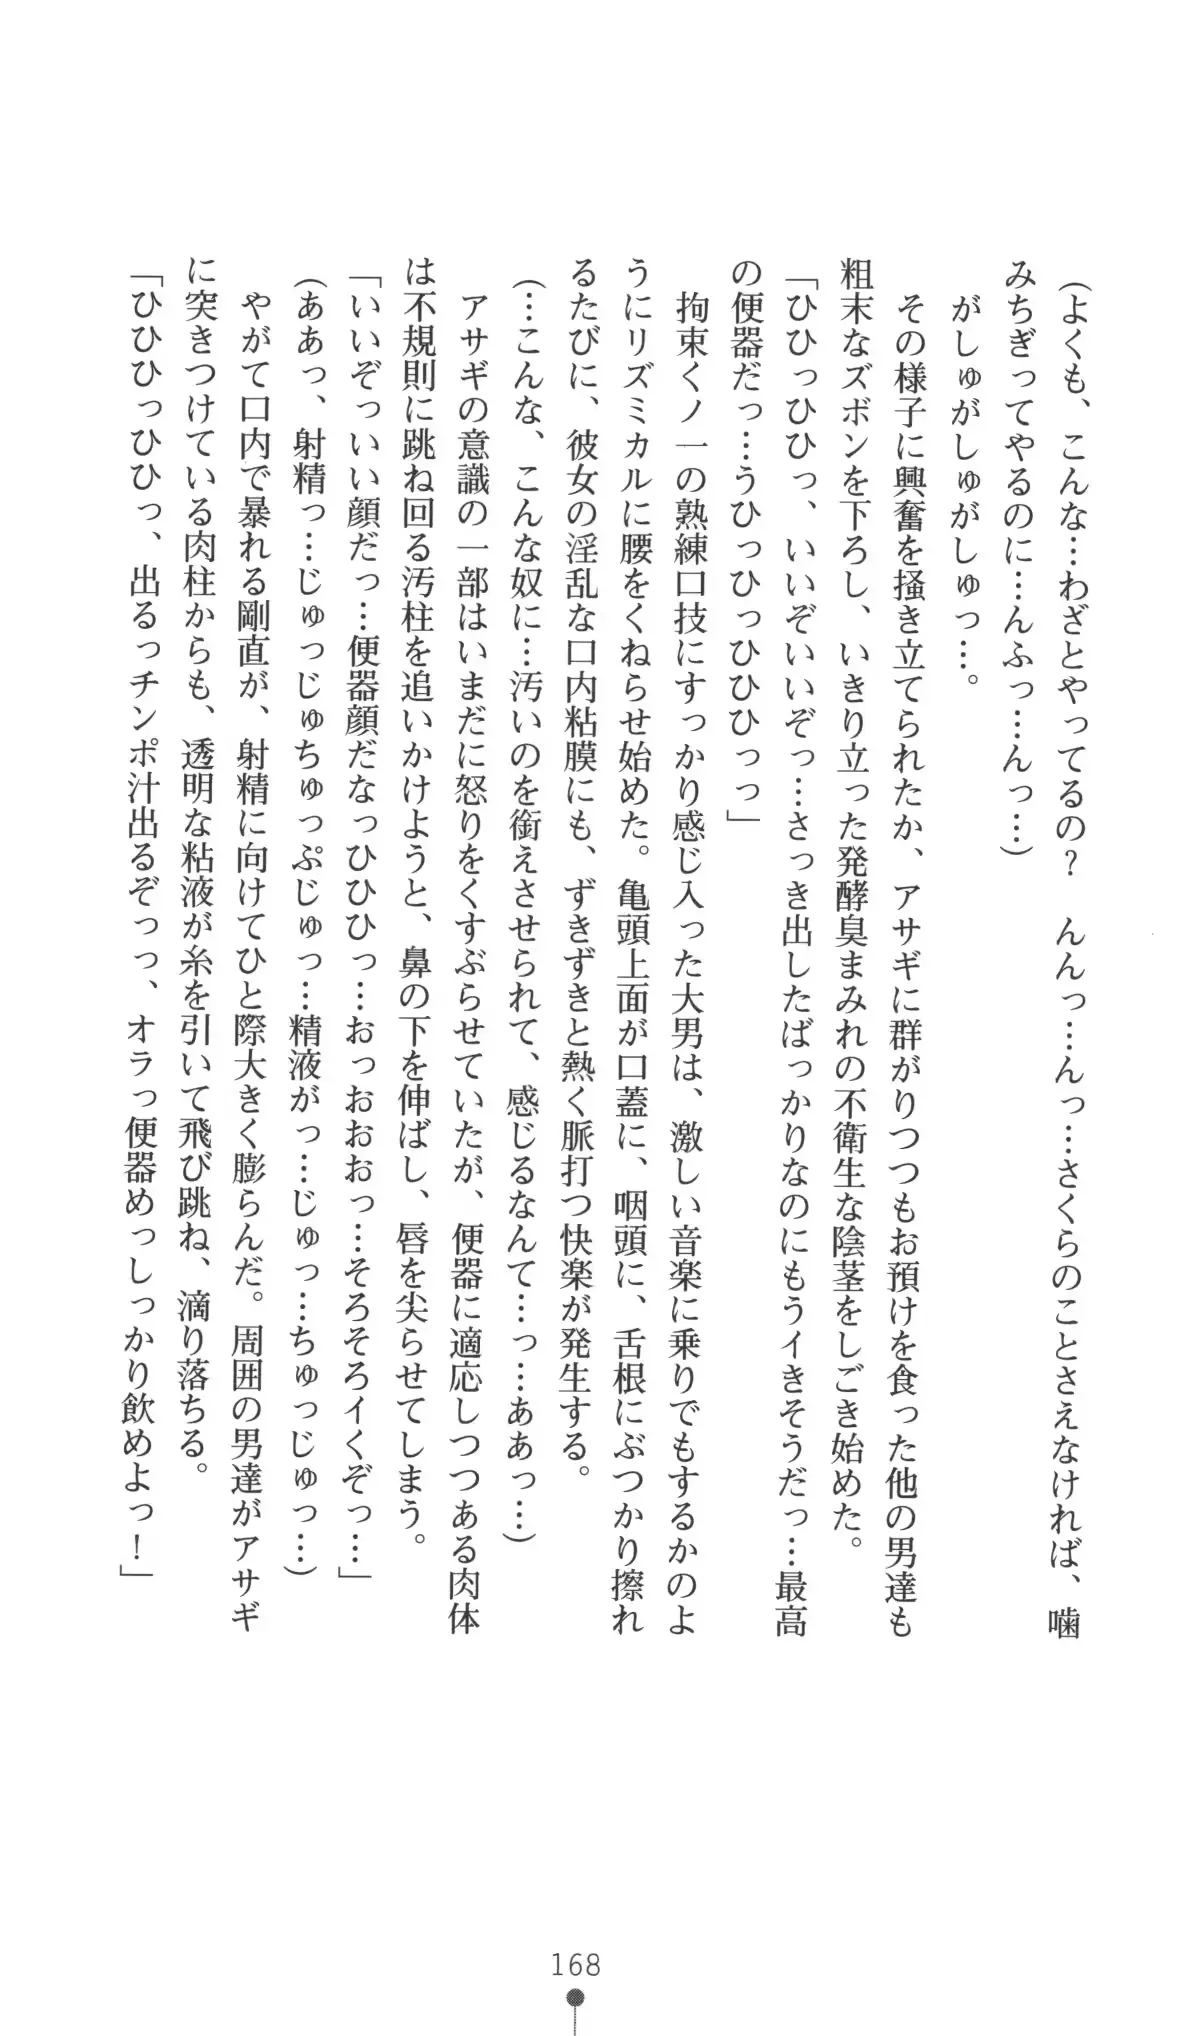 (よくも、こんな…わざとやってるの？　んんっ…んっ…さくらのことさえなければ、噛
みちぎってやるのに…んふっ…んっ…)
がしゅがしゅがしゅっ…。
その様子に興奮を掻き立てられたか、アサギに群がりつつもお預けを食った他の男達も
粗末なズボンを下ろし、いきり立った発酵臭まみれの不衛生な陰茎をしごき始めた。
「ひひっひひっ、いいぞいいぞっ…さっき出したばっかりなのにもうイきそうだっ…最高
の便器だっ…うひっひっひひひっっ」
拘束くノ一の熟練口技にすっかり感じ入った大男は、激しい音楽に乗りでもするかのよ
うにリズミカルに腰をくねらせ始めた。亀頭上面が口蓋に、咽頭に、舌根にぶつかり擦れ
るたびに、彼女の淫乱な口内粘膜にも、ずきずきと熱く脈打つ快楽が発生する。
(…こんな、こんな奴に…汚いのを銜えさせられて、感じるなんて…っ…ああっ…)
アサギの意識の一部はいまだに怒りをくすぶらせていたが、便器に適応しつつある肉体
は不規則に跳ね回る汚柱を追いかけようと、鼻の下を伸ばし、唇を尖らせてしまう。
「いいぞっいい顔だっ…便器顔だなっひひひっ…おっおおおっ…そろそろイくぞっ…」
(ああっ、射精っ…じゅっじゅちゅっぷじゅっ…精液がっ…じゅっ…ちゅっじゅっ…)
やがて口内で暴れる剛直が、射精に向けてひと際大きく膨らんだ。周囲の男達がアサギ
に突きつけている肉柱からも、透明な粘液が糸を引いて飛び跳ね、滴り落ちる。
「ひひひっひひっ、出るっチンポ汁出るぞっっ、オラっ便器めっしっかり飲めよっ！」
168